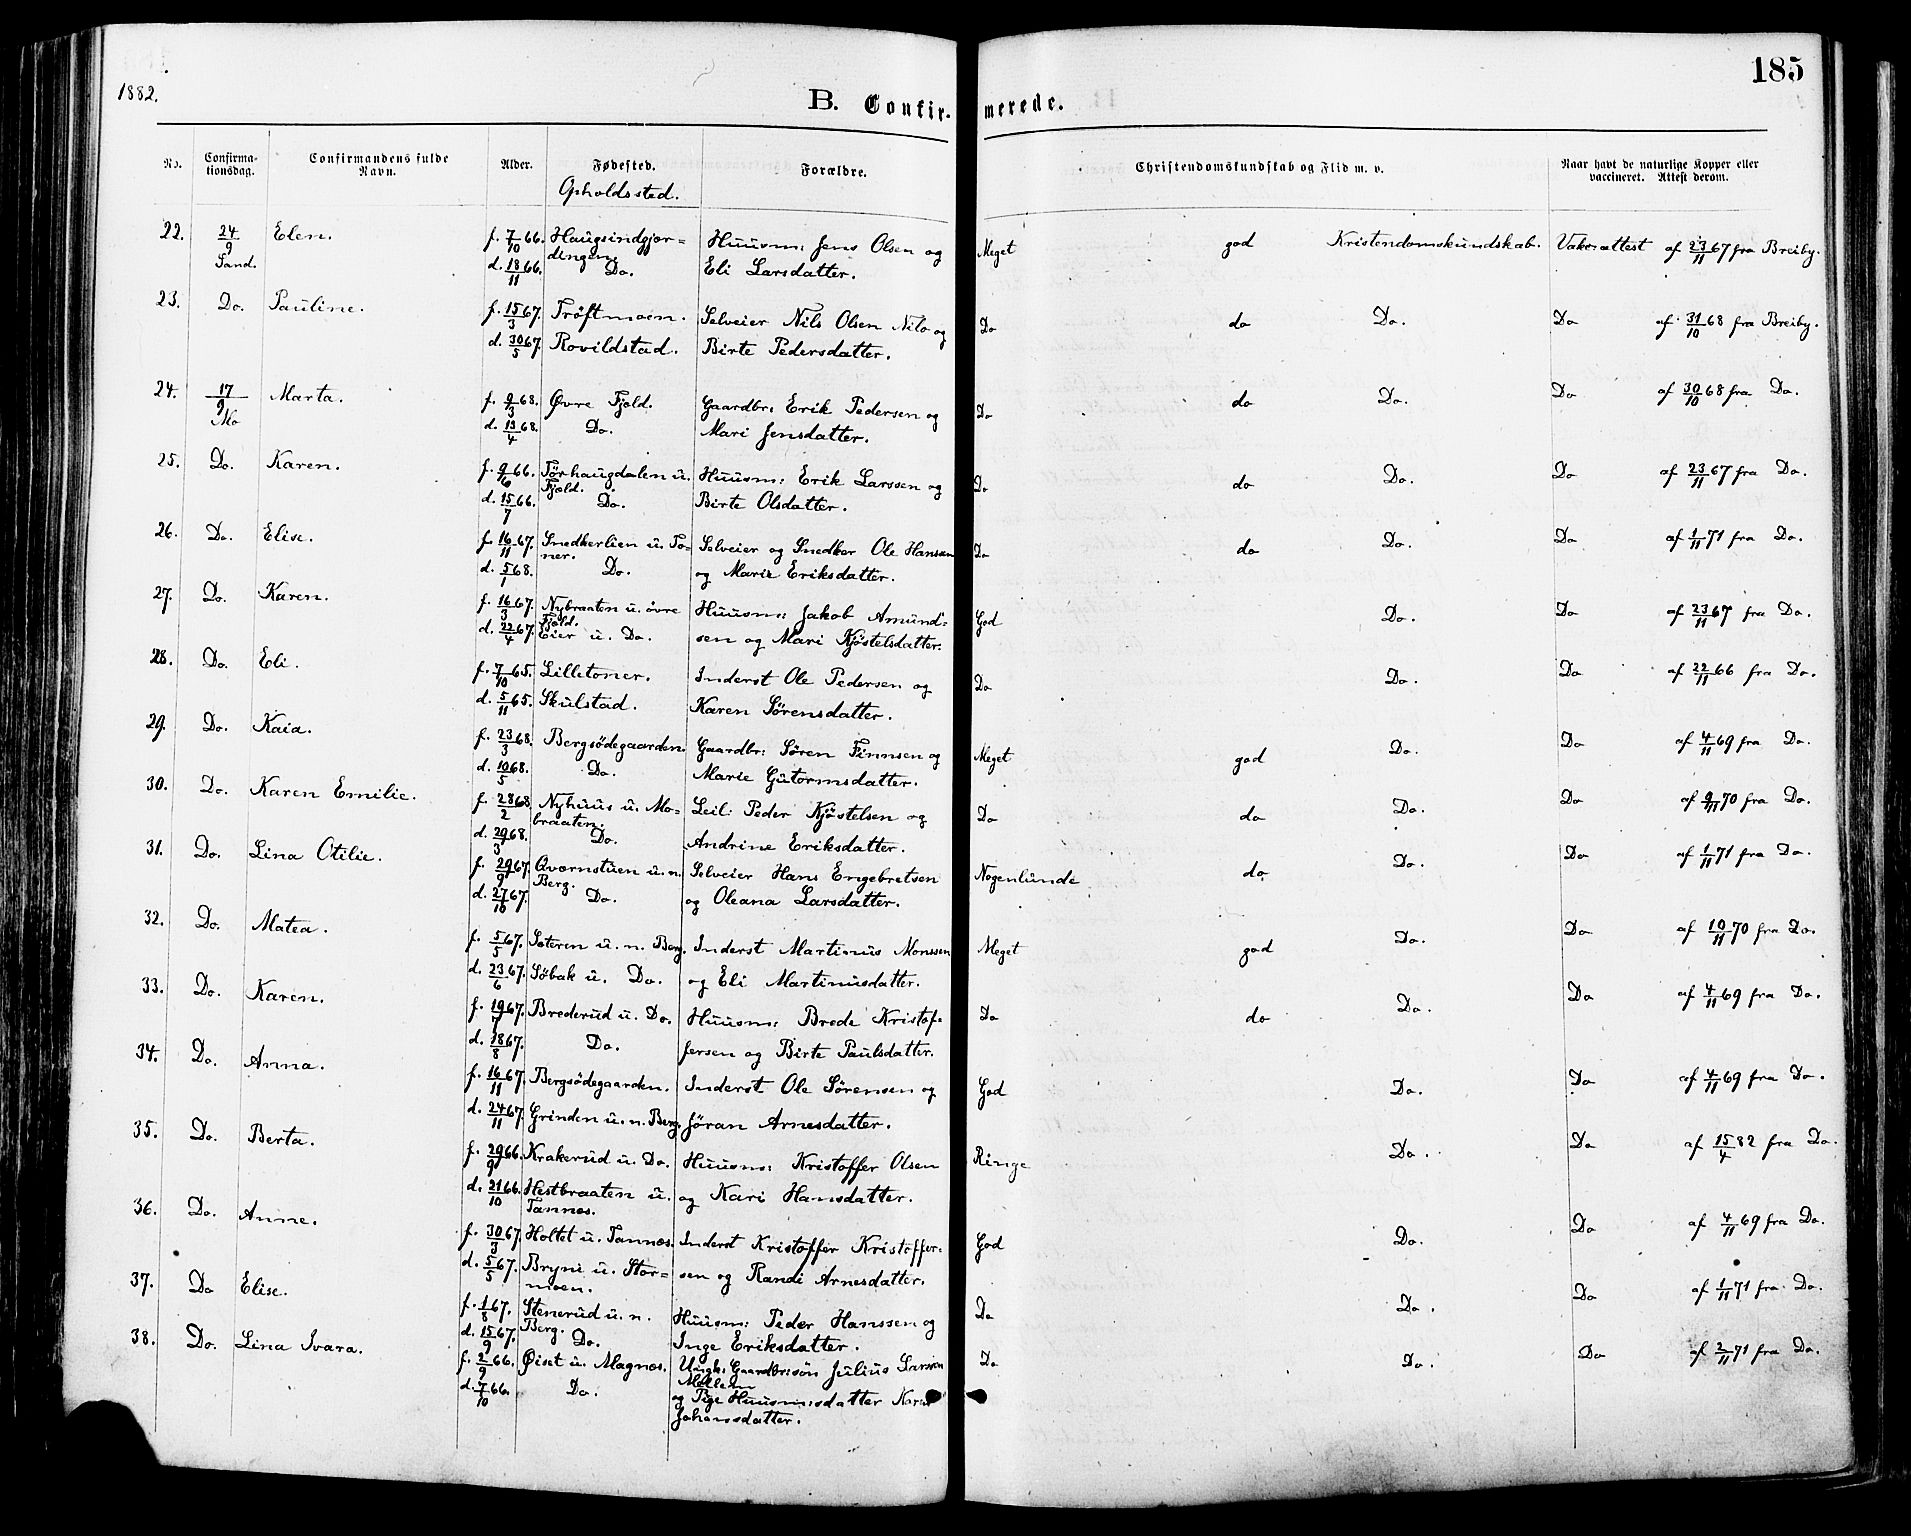 185
1882.
B. Confirmerede.
No. Confirmationsdag. Confirmandens fulde Navn. Alder. Fødested. Forældre. Christendomskundskab og Flid m. v. Naar havt de naturlige Kopper eller vaccineret. Attest derom.
Opholdssted.
22. 24/9 Sand. Elen. f. 7/10 66. Haugsindgjær=dingen. Huusm: Jens Olsen og Meget god Kristendomskundskab. Vakc:attest af 23/11 67 fra Breiby.
d. 18/11 66. Do. Eli Larsdatter.
23. Do. Pauline. f. 15/3 67. Trøftmoen. Selveier Nils Olsen Nilo og Do do Do. Do af 31/10 68 fra Breiby.
d. 30/5 67. Rovildstad. Birte Pedersdatter.
24. 17/9 Mo Marta. f. 9/3 68. Øvre Fjeld. Gaardbr: Erik Pedersen og Do do Do. Do af 30/10 68 fra Do.
d. 13/4 68. Do. Mari Jensdatter.
25. Do. Karen. f. 9/6 66. Tørhaugdalen u. Fjeld. Huusm: Erik Larssen og Do do Do. Do af 23/11 67 fra Do.
d. 15/7 66. Do. Birte Olsdatter.
26. Do. Elise. f. 16/11 67. Snedkerlien u. To=ner. Selveier og Snedker Ole Hanssen Do do Do. Do af 1/11 71 fra Do.
d. 5/1 68. Do. og Marie Eriksdatter.
27. Do. Karen. f. 16/3 67. Nybraaten u. øvre Fjeld. Huusm: Jakob Amund= God Do. Do af 23/11 67 fra Do.
d. 22/4 67. Eier u. Do. sen og Mari Kjøstelsdatter.
28. Do. Eli. f. 7/10 65. Lilletoner. Inderst Ole Pedersen og Do Do. Do af 22/11 66 fra Do.
d. 5/11 65. Skulstad. Karen Sørensdatter.
29. Do. Kaia. f. 23/3 68. Bergsødegaarden. Gaardbr: Søren Finnsen og Meget god Do. Do af 4/11 69 fra Do.
d. 10/5 68. Do. Marie Gutormsdatter.
30. Do. Karen Emilie. f. 28/2 68. Nyhuus u. Mo=braaten. Leil: Peder Kjøstelsen og Do do Do. Do af 9/11 70 fra Do.
d. 29/3 68. Do. Andrine Eriksdatter.
31. Do. Lina Otilie. f. 29/9 67. Qværnstuen u. n. Berg. Selveier Hans Engebretsen Nogenlunde do Do. Do af 1/11 71 fra Do.
d. 27/10 67. Do. og Oleana Larsdatter.
32. Do. Matea. f. 5/5 67. Sæteren u. n. Berg. Inderst Martinus Monssen Meget god Do. Do af 10/11 70 fra Do.
d. 23/6 67. Søbak u. Do. og Eli Martinusdatter.
33. Do. Karen. f. 19/7 67. Brederud u. Do. Huusm: Brede Kristof= Do do Do. Do af 4/11 69 fra Do.
d. 18/8 67. Do. fersen og Birte Paulsdatter.
34. Do. Anna. f. 16/11 67. Bergsødegaarden. Inderst Ole Sørensen og God Do. Do af 4/11 69 fra Do.
d. 24/11 67. Grinden u. n. Berg. Jøran Arnesdatter.
35. Do. Berta. f. 29/9 66. Krakerud u. Do. Huusm: Kristoffer Olsen Ringe Do. Do af 15/4 82 fra Do.
d. 21/10 66. Hestbraaten u. Tannes. og Kari Hansdatter.
36. Do. Anne. f. 30/3 67. Holtet u. Tannes. Inderst Kristoffer Kristoffer= God Do. Do af 4/11 69 fra Do.
d. 5/5 67. Bryni u. Stor=moen. sen og Randi Arnesdatter.
37. Do Elise. f. 1/8 67. Stenerud u. n. Berg. Huusm: Peder Hanssen og Do Do. Do af 1/11 71 fra Do.
d. 15/9 67. Do. Inge Eriksdatter.
38. Do. Lina Svara. f. 2/9 66. Øiset u. Magnos. Ungk. Gaardbr:søn Julius Larssen Do Do. Do af 2/11 71 fra Do.
d. 7/10 66. Do. og Pige Huusm:sdatter
Johansdatter.